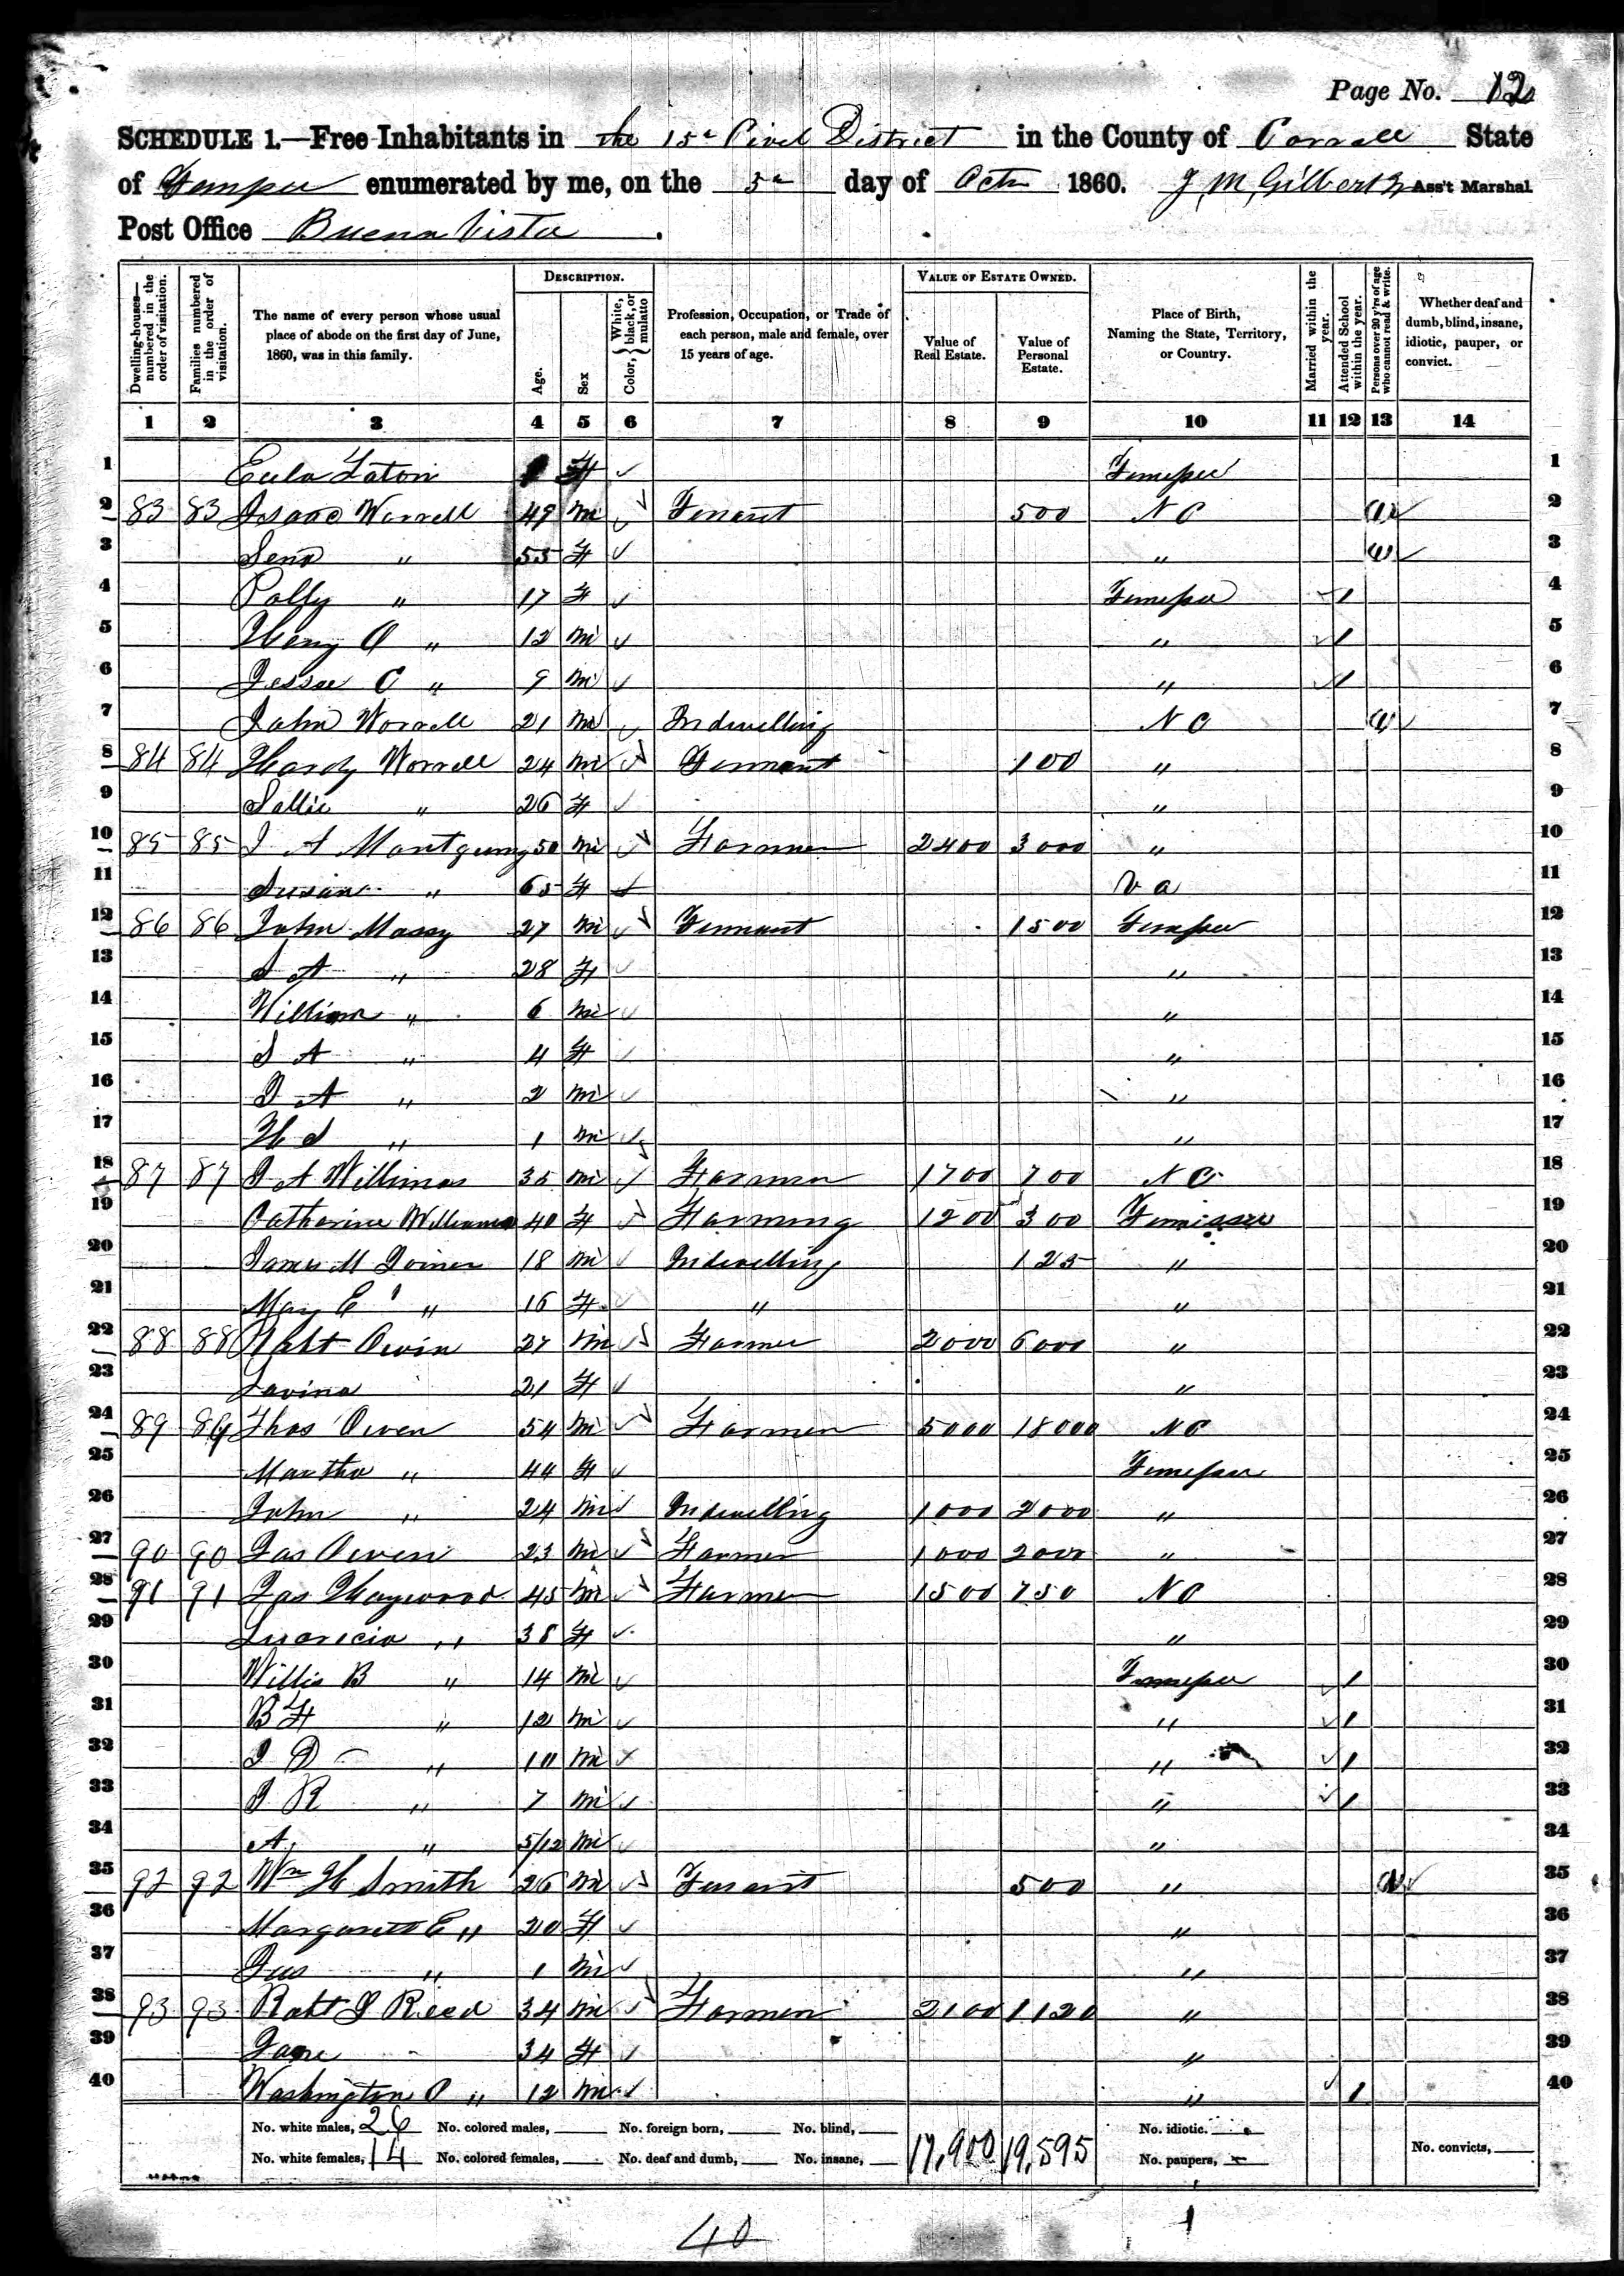 Page No. 12
SCHEDULE 1.—Free Inhabitants in the 15th Civil District in the County of Carroll State
of Tennessee enumerated by me, on the 5th day of Octr 1860. J, M, Gilbert Ass't Marshal
Post Office Buena Vista
Dwelling-houses—numbered in the order of visitation.
Families numbered in the order of visitation.
The name of every person whose usual place of abode on the first day of June, 1860, was in this family.
DESCRIPTION.
Age.
Sex
Color, {White, black, or mulatto
Profession, Occupation, or Trade of each person, male and female, over 15 years of age.
VALUE OF ESTATE OWNED.
Value of Real Estate.
Value of Personal Estate.
Place of Birth, Naming the State, Territory, or Country.
Married within the year.
Attended School within the year.
Persons over 20 y'rs of age who cannot read & write.
Whether deaf and dumb, blind, insane, idiotic, pauper, or convict.
1 2 3 4 5 6 7 8 9 10 11 12 13 14
1 Eula F Tennessee 1
2 83 83 Isaac Worrell 49 M Tenant 500 N C 2
3 Sena " 55 F " 3
4 Polly " 17 F Tennessee / 4
5 " 12 M " / 5
6 Jessee C " 9 M " / 6
7 John Worrell 21 M Indwelling N C 7
8 84 84 Hardy Worrell 24 M Tennant 100 " 8
9 Sallie " 26 F " 9
10 85 85 A Montgumy 50 M Farmer 2400 3000 " 10
11 Susan " 65 F Va 11
12 86 86 John Massy 27 M Tennant 1500 Tennessee 12
13 S A " 28 F " 13
14 William " 6 M " 14
15 S A " 4 F " 15
16 J A " 2 M " 16
17 H S " 1 M " 17
18 87 87 J A Willimas 35 M Farmer 1700 700 N C 18
19 Catherine Williams 40 F Farming 1200 300 Tennissee 19
20 James M Joiner 18 M Indwelling 125 " 20
21 May E " 16 F " " 21
22 88 88 Robt Owin 27 M Farmer 2000 6000 " 22
23 Lavina 21 F " 23
24 89 89 Thos Owen 54 M Farmer 5000 18000 N C 24
25 Martha " 44 F Tennessee 25
26 John " 24 M Indwelling 1000 2000 " 26
27 90 90 Jas Owen 23 M Farmer 1000 2000 " 27
28 91 91 Jas Haywood 45 M Farmer 1500 750 N C 28
29 " 38 F " 29
30 Willis B " 14 M Tennessee / 30
31 B F " 12 M " / 31
32 J D " 10 M " / 32
33 J R " 7 M " / 33
34 A " 5/12 M " 34
35 92 92 Wm H Smith 26 M Tenant 500 " 35
36 Margarett E " 20 F " 36
37 " 1 M " 37
38 93 93 Robt J Reed 34 M Farmer 2100 1120 " 38
39 Jane 34 F " 39
40 Washington " 12 M " / 40
No. white males, 26 No. colored males, No. foreign born, No. blind, 17,900 19,595 No. idiotic. No. convicts,
No. white females, 14 No. colored females, No. deaf and dumb, No. insane, No. paupers,
40